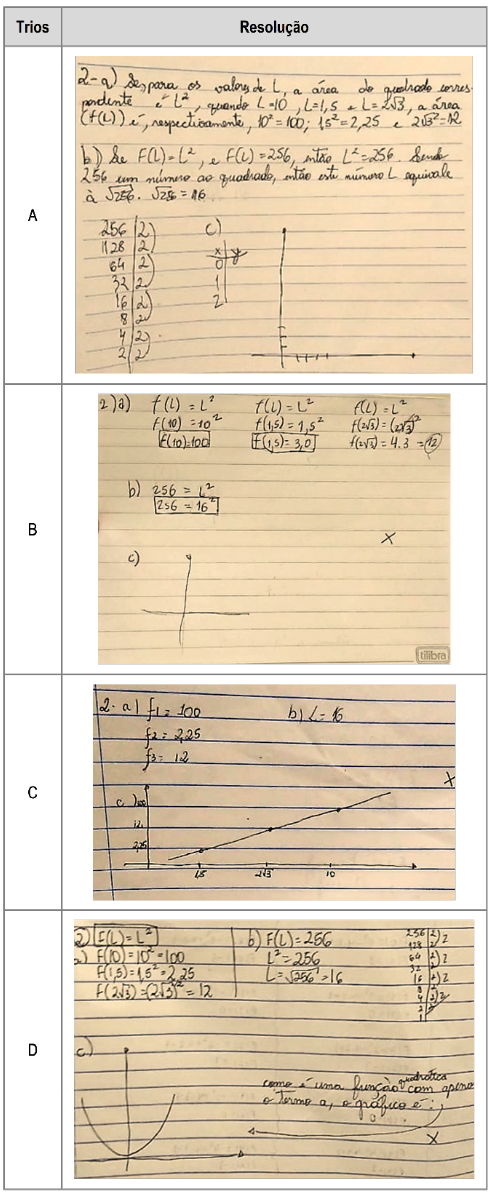 Trios Resolução
A
2-a) Se, para os valores de L, a área do quadrado corres-
pondente é L², quando L=10, L=1,5 e L=2√3, a área
(f(L)) é, respectivamente, 10²=100; 1,5²=2,25 e 2√3²=12
b) Se F(L)=L², e F(L)=256, então L²=256. Sendo
256 um número ao quadrado, então este número L equivale
à √256. √256=16.
256 | 2
128 | 2
64 | 2
32 | 2
16 | 2
8 | 2
4 | 2
2 | 2
c)
x y
0
1
2
B
2)a) f(L) = L² f(L) = L² f(L) = L²
f(10) = 10² f(1,5) = 1,5² f(2√3) = (2√3)²
f(10)=100 f(1,5)= 3,0 f(2√3) = 4.3 = 12
b) 256 = L²
256 = 16²
X
c)
tilibra
C
2- a) f1 = 100 b) L = 16
f2 = 2,25
f3 = 12
X
c) 100
12
2,25
1,5 2√3 10
D
2) F(L)=L²
a) F(10)=10²=100
F(1,5)=1,5²=2,25
F(2√3)=(2√3)²=12
b) F(L)=256
L²=256
L=√256=16
256 2
128 2 2
64 2
32 2 2
16 2
8 2 2
4 2
2 2 2
1
c)
como é uma função quadrática com apenas
o termo a, o gráfico é:
X